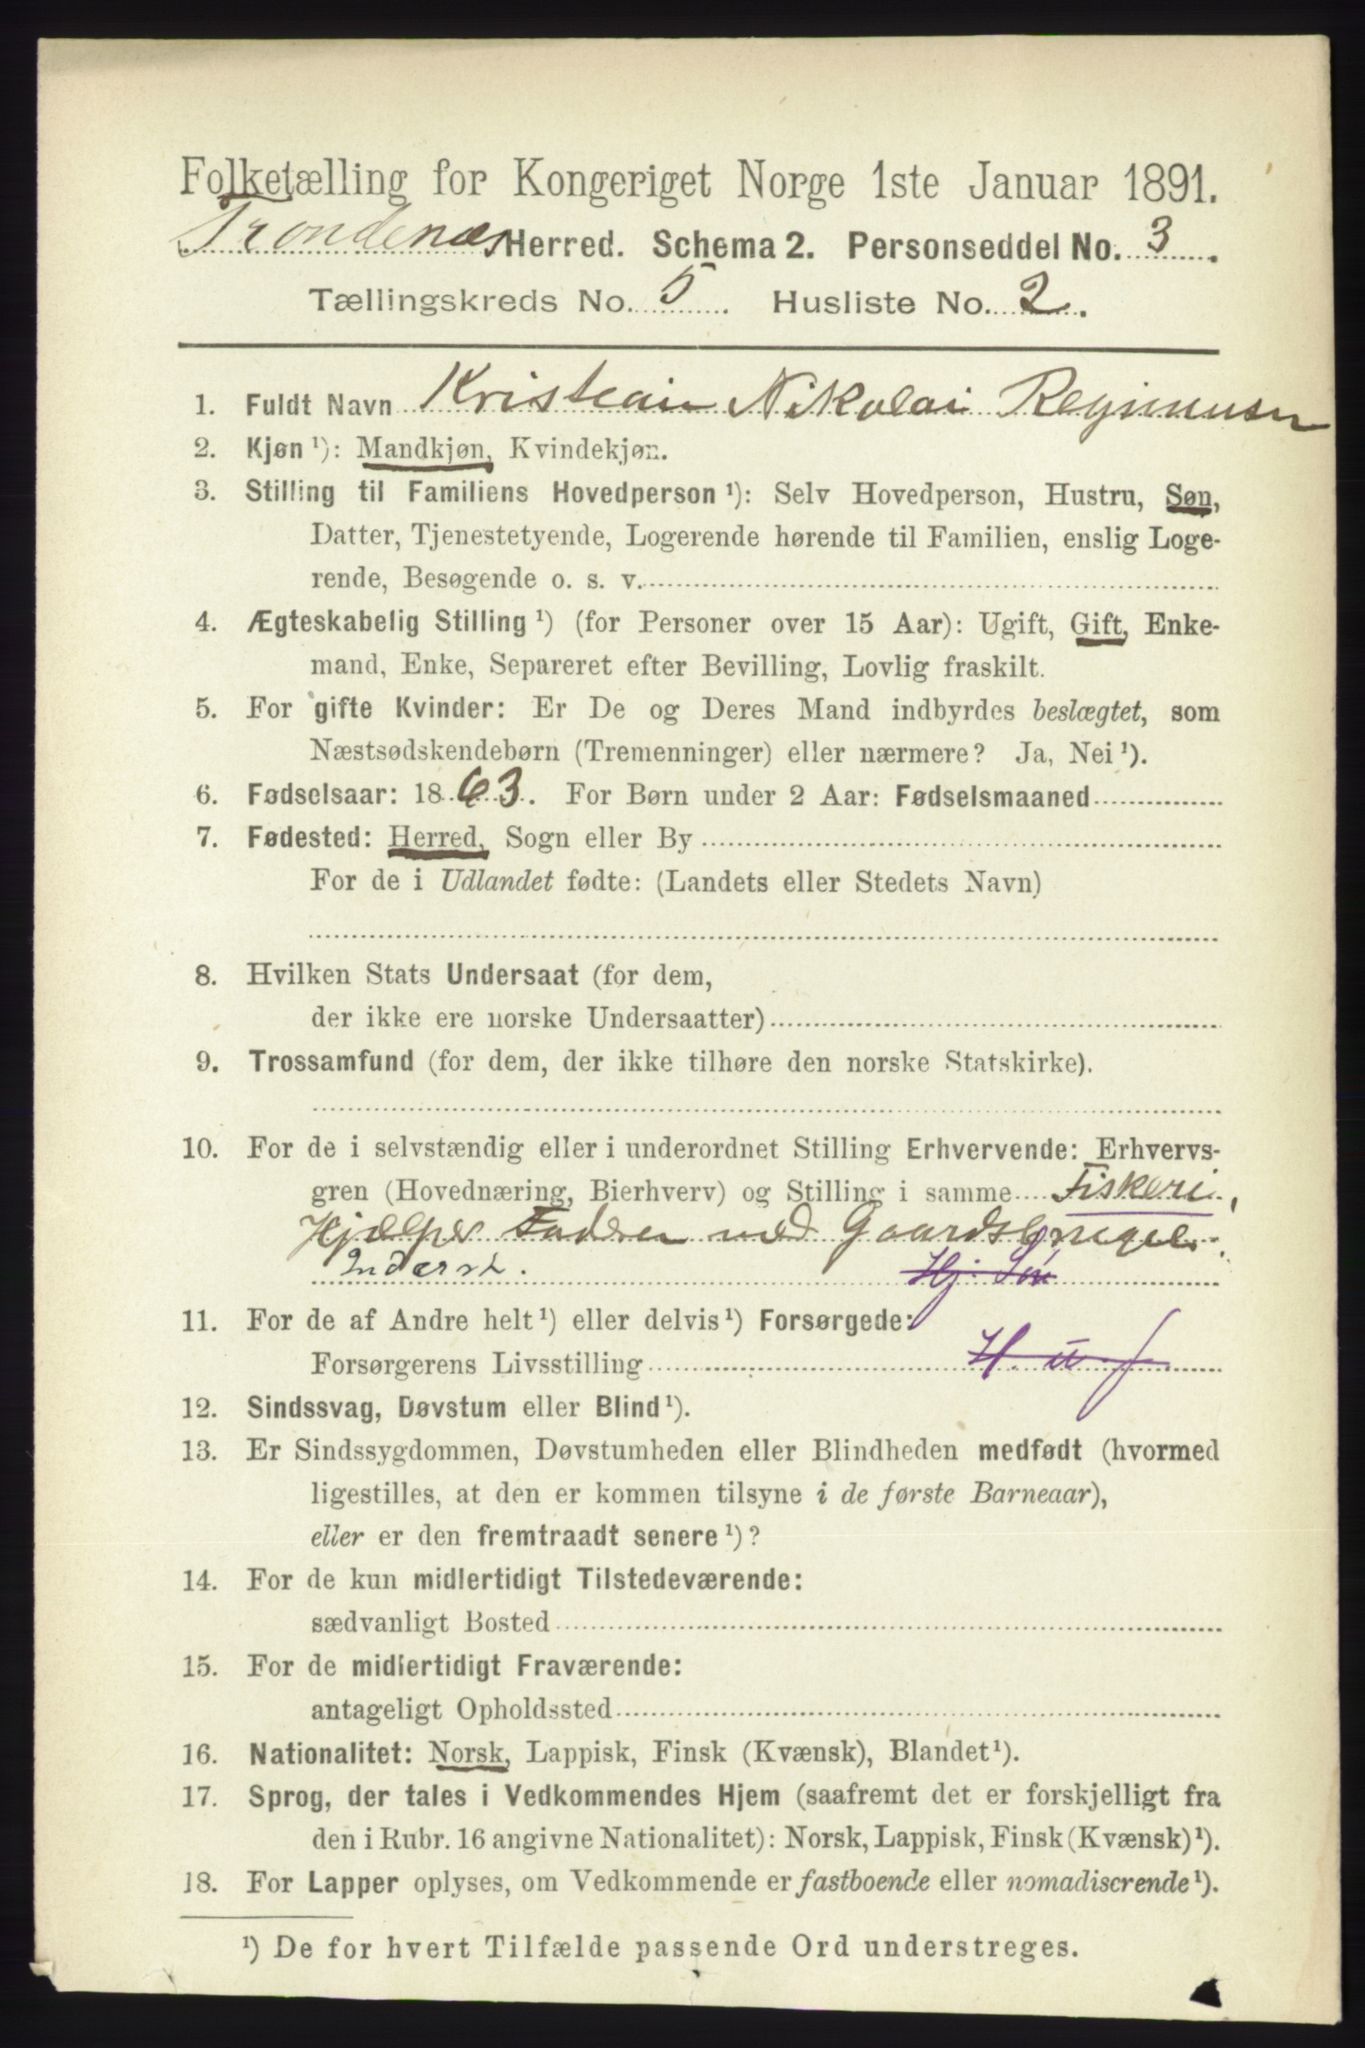 Folketælling for Kongeriget Norge 1ste Januar 1891.
Trondenæs Herred. Schema 2. Personseddel No. 3.
Tællingskreds No. 5. Husliste No. 2.
1. Fuldt Navn Kristian Nikolai
2. Kjøn ¹): Mandkjøn, Kvindekjøn.
3. Stilling til Familiens Hovedperson ¹): Selv Hovedperson, Hustru, Søn,
Datter, Tjenestetyende, Logerende hørende til Familien, enslig Loge-
rende, Besøgende o. s. v.
4. Ægteskabelig Stilling ¹) (for Personer over 15 Aar): Ugift, Gift, Enke-
mand, Enke, Separeret efter Bevilling, Lovlig fraskilt.
5. For gifte Kvinder: Er De og Deres Mand indbyrdes beslægtet, som
Næstsødskendebørn (Tremenninger) eller nærmere? Ja, Nei ¹).
6. Fødselsaar: 1863. For Børn under 2 Aar: Fødselsmaaned
7. Fødested: Herred, Sogn eller By
For de i Udlandet fødte: (Landets eller Stedets Navn)
8. Hvilken Stats Undersaat (for dem,
der ikke ere norske Undersaatter)
9. Trossamfund (for dem, der ikke tilhøre den norske Statskirke).
10. For de i selvstændig eller i underordnet Stilling Erhvervende: Erhvervs-
gren (Hovednæring, Bierhverv) og Stilling i samme Fiskeri,
Hjælper Faderen med Gaardsbruget.
Inderst. Hj. Søn
11. For de af Andre helt ¹) eller delvis ¹) Forsørgede:
Forsørgerens Livsstilling H. u. f
12. Sindssvag, Døvstum eller Blind ¹).
13. Er Sindssygdommen, Døvstumheden eller Blindheden medfødt (hvormed
ligestilles, at den er kommen tilsyne i de første Barneaar),
eller er den fremtraadt senere ¹)?
14. For de kun midlertidigt Tilstedeværende:
sædvanligt Bosted
15. For de midlertidigt Fraværende:
antageligt Opholdssted
16. Nationalitet: Norsk, Lappisk, Finsk (Kvænsk), Blandet ¹).
17. Sprog, der tales i Vedkommendes Hjem (saafremt det er forskjelligt fra
den i Rubr. 16 angivne Nationalitet): Norsk, Lappisk, Finsk (Kvænsk) ¹).
18. For Lapper oplyses, om Vedkommende er fastboende eller nomadiserende ¹).
¹) De for hvert Tilfælde passende Ord understreges.